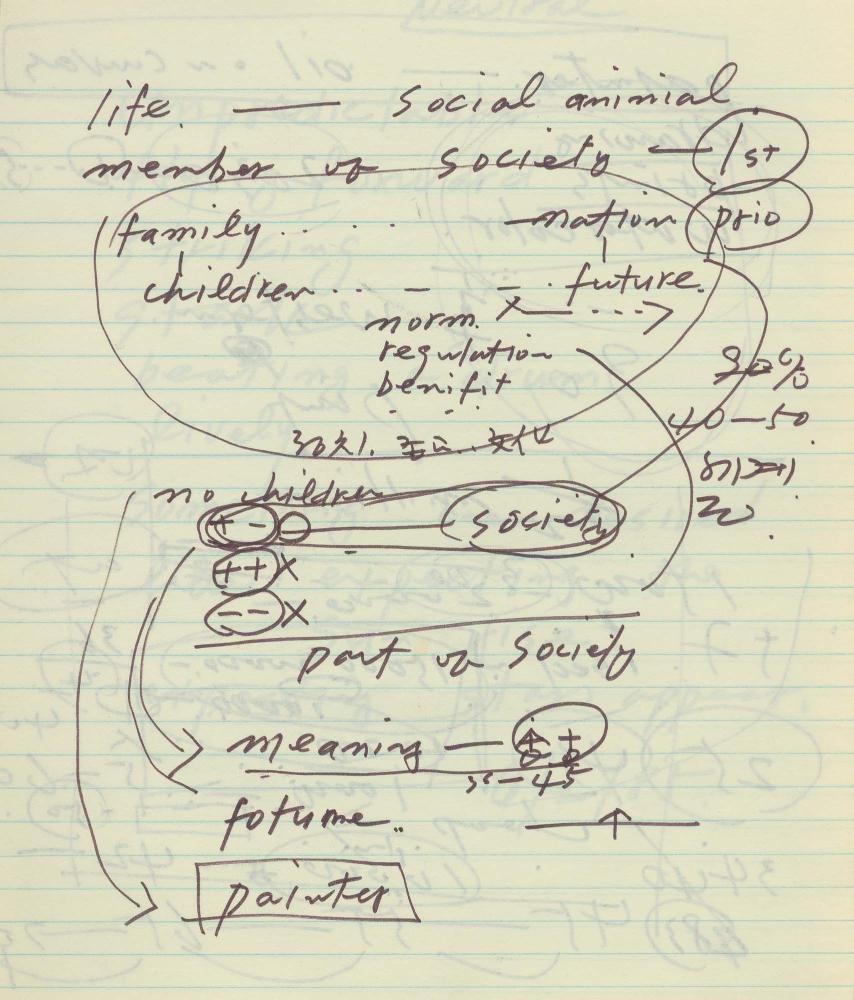 life. — social aninial
member of society — 1st
family . . . . . — nation prio
children . . — – . future.
norm.
regulation
benifit
30%
40—50
no children
+ - - — society
++ X
-- X
part of society
meaning — ++
35—45
fotume..
painter